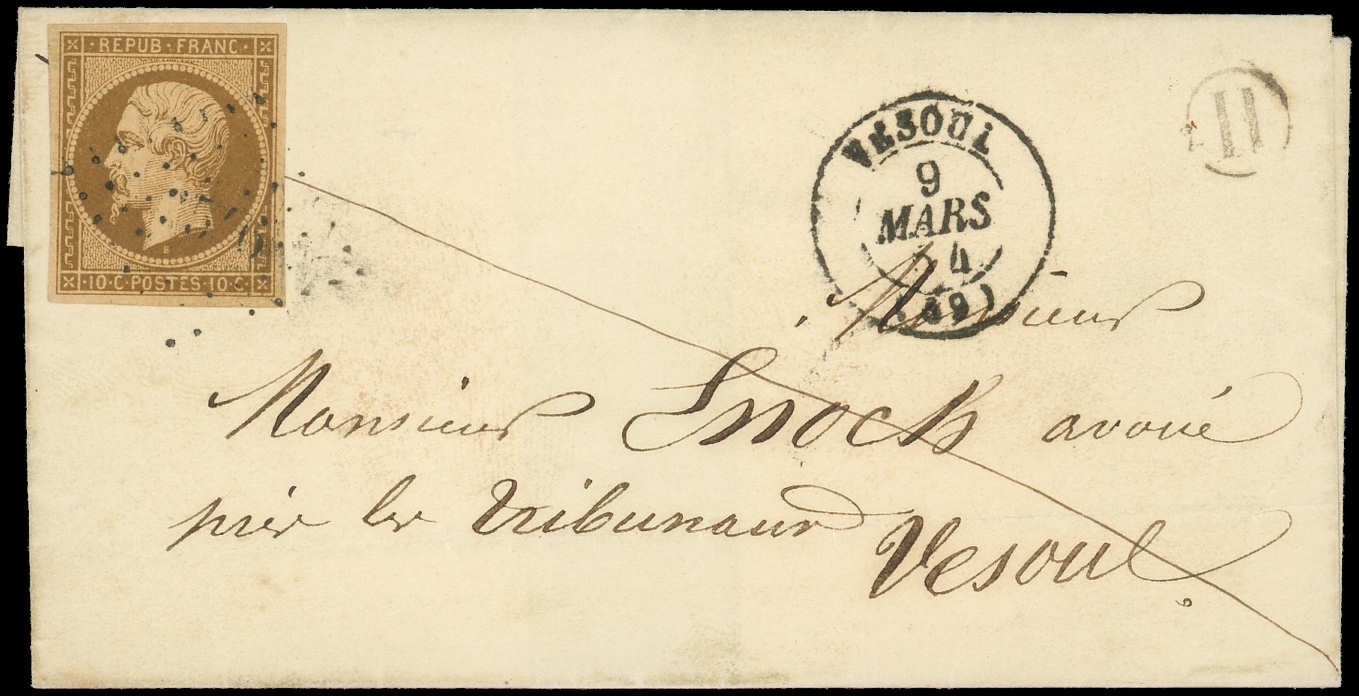 REPUB·FRANC·
10·C·POSTES·10·C·
VESOUL
9
MARS
54
(69)
H
Monsieur
Monsieur Enoch avoué
près les tribunaux
Vesoul